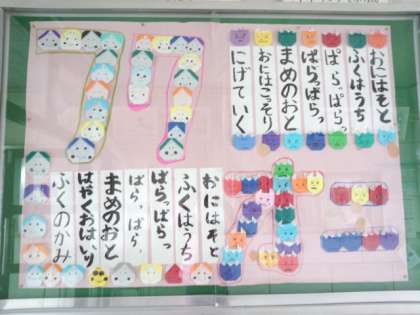 フク
おにはそと
ふくはうち
ぱらっぱらっ
ぱらっぱらっ
まめのおと
おにはこっそり
にげていく
おにはそと
ふくはうち
ぱらっぱらっ
ぱらっぱらっ
まめのおと
はやくおはいり
ふくのかみ
オニ